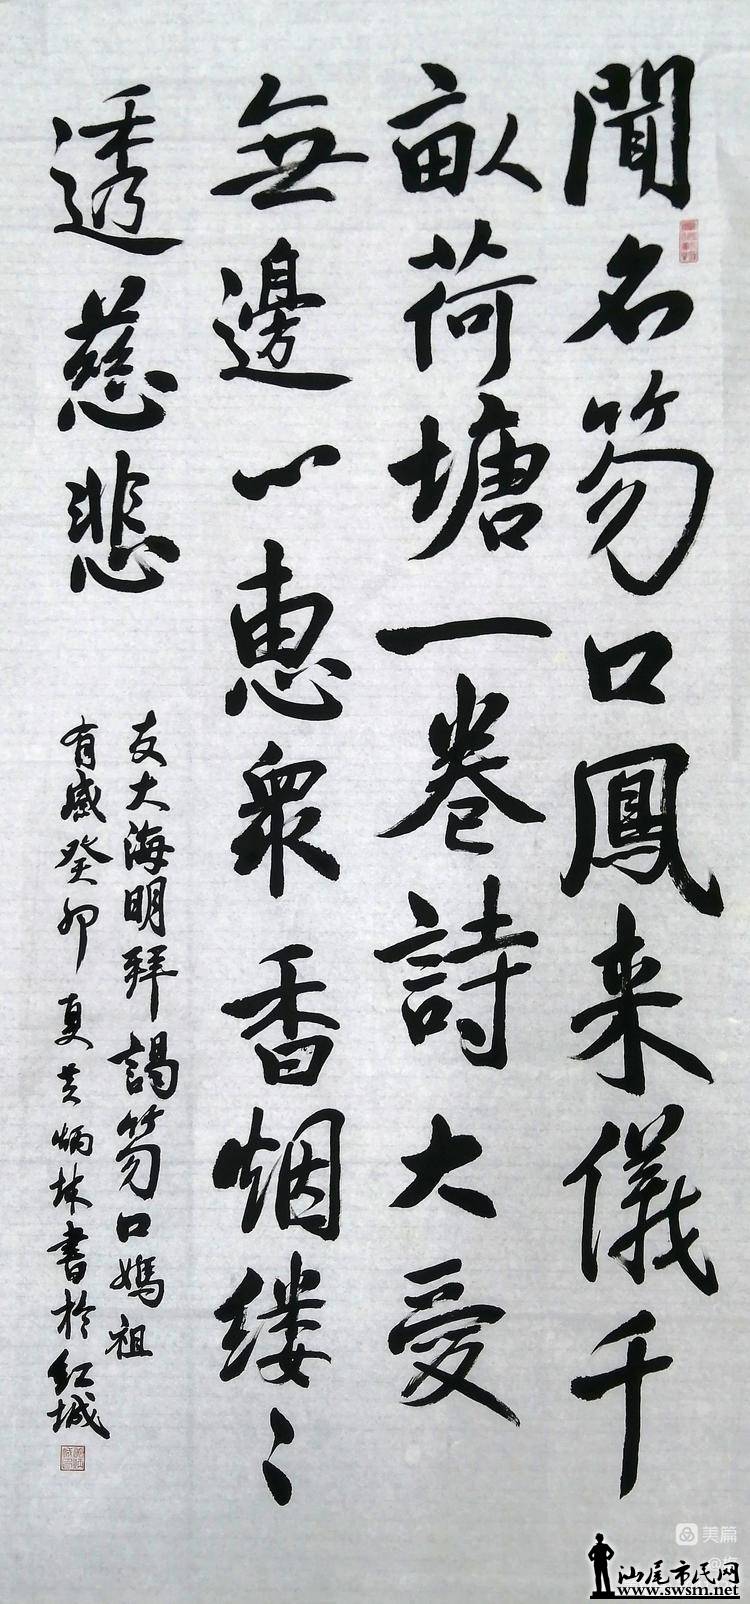 聞名笏口鳳来儀千
畝荷塘一卷詩大爱
無邊心惠衆香烟缕〻
透慈悲
友大海明拜謁笏口媽祖
有感癸卯夏黄炳林書於紅城
美篇
汕尾市民网
www.swsm.net